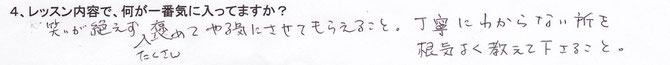 4、レッスン内容で、何が一番気に入ってますか？
笑いが絶えず褒めてやる気にさせてもらえること。丁寧にわからない所を
入
たくさん
根気よく教えて下さること。